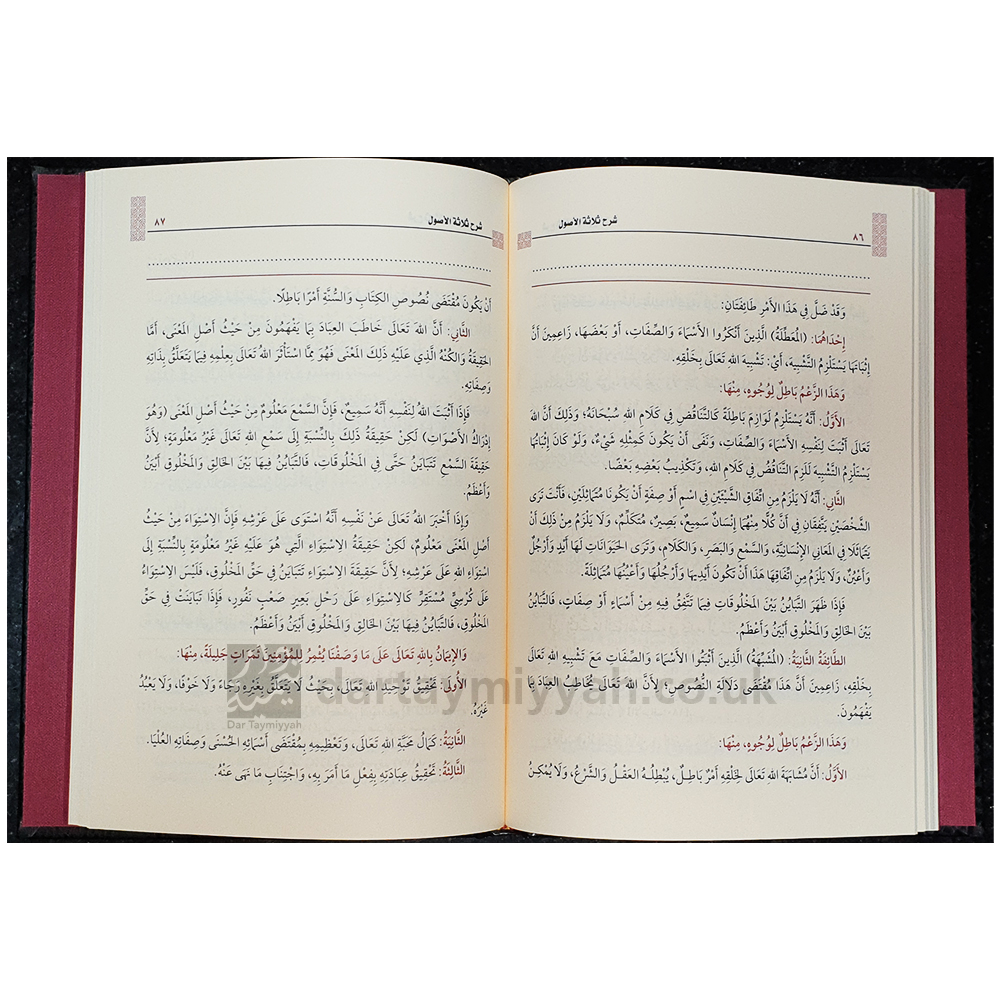 شرح ثلاثة الأصول
٨٦
وَقَدْ ضَلَّ فِي هَذَا الأَمْرِ طَائِفَتَانِ:
إِحْدَاهُمَا: (المُعَطِّلَةُ) الَّذِينَ أَنْكَرُوا الأَسْمَاءَ وَالصِّفَاتِ، أَوْ بَعْضَهَا، زَاعِمِينَ أَنَّ
إِثْبَاتَهَا يَسْتَلْزِمُ التَّشْبِيهَ، أَيْ: تَشْبِيهَ اللهِ تَعَالَى بِخَلْقِهِ.
وَهَذَا الزَّعْمُ بَاطِلٌ لِوُجُوهٍ، مِنْهَا:
الأَوَّلُ: أَنَّهُ يَسْتَلْزِمُ لَوَازِمَ بَاطِلَةً كَالتَّنَاقُضِ فِي كَلَامِ اللهِ سُبْحَانَهُ؛ وَذَلِكَ أَنَّ اللهَ
تَعَالَى أَثْبَتَ لِنَفْسِهِ الأَسْمَاءَ وَالصِّفَاتِ، وَنَفَى أَنْ يَكُونَ كَمِثْلِهِ شَيْءٌ، وَلَوْ كَانَ إِثْبَاتُهَا
يَسْتَلْزِمُ التَّشْبِيهَ لَلَزِمَ التَّنَاقُضُ فِي كَلَامِ اللهِ، وَتَكْذِيبُ بَعْضِهِ بَعْضًا.
الثَّانِي: أَنَّهُ لَا يَلْزَمُ مِنِ اتِّفَاقِ الشَّيْئَيْنِ فِي اسْمٍ أَوْ صِفَةٍ أَنْ يَكُونَا مُتَمَاثِلَيْنِ، فَأَنْتَ تَرَى
الشَّخْصَيْنِ يَتَّفِقَانِ فِي أَنَّ كُلًّا مِنْهُمَا إِنْسَانٌ سَمِيعٌ، بَصِيرٌ، مُتَكَلِّمٌ، وَلَا يَلْزَمُ مِنْ ذَلِكَ أَنْ
يَتَمَاثَلَا فِي المَعَانِي الإِنْسَانِيَّةِ، وَالسَّمْعِ وَالبَصَرِ، وَالكَلَامِ، وَتَرَى الحَيَوَانَاتِ لَهَا أَيْدٍ وَأَرْجُلٌ
وَأَعْيُنٌ، وَلَا يَلْزَمُ مِنِ اتِّفَاقِهَا هَذَا أَنْ تَكُونَ أَيْدِيهَا وَأَرْجُلُهَا وَأَعْيُنُهَا مُتَمَاثِلَةً.
فَإِذَا ظَهَرَ التَّبَايُنُ بَيْنَ المَخْلُوقَاتِ فِيمَا تَتَّفِقُ فِيهِ مِنْ أَسْمَاءٍ أَوْ صِفَاتٍ، فَالتَّبَايُنُ
بَيْنَ الخَالِقِ وَالمَخْلُوقِ أَبْيَنُ وَأَعْظَمُ.
الطَّائِفَةُ الثَّانِيَةُ: (المُشَبِّهَةُ) الَّذِينَ أَثْبَتُوا الأَسْمَاءَ وَالصِّفَاتِ مَعَ تَشْبِيهِ اللهِ تَعَالَى
بِخَلْقِهِ، زَاعِمِينَ أَنَّ هَذَا مُقْتَضَى دَلَالَةِ النُّصُوصِ؛ لِأَنَّ اللهَ تَعَالَى يُخَاطِبُ العِبَادَ بِمَا
يَفْهَمُونَ.
وَهَذَا الزَّعْمُ بَاطِلٌ لِوُجُوهٍ، مِنْهَا:
الأَوَّلُ: أَنَّ مُشَابَهَةَ اللهِ تَعَالَى لِخَلْقِهِ أَمْرٌ بَاطِلٌ، يُبْطِلُهُ العَقْلُ وَالشَّرْعُ، وَلَا يُمْكِنُ
شرح ثلاثة الأصول
٨٧
أَنْ يَكُونَ مُقْتَضَى نُصُوصِ الكِتَابِ وَالسُّنَّةِ أَمْرًا بَاطِلًا.
الثَّانِي: أَنَّ اللهَ تَعَالَى خَاطَبَ العِبَادَ بِمَا يَفْهَمُونَ مِنْ حَيْثُ أَصْلِ المَعْنَى، أَمَّا
الحَقِيقَةُ وَالكُنْهُ الَّذِي عَلَيْهِ ذَلِكَ المَعْنَى فَهُوَ مِمَّا اسْتَأْثَرَ اللهُ تَعَالَى بِعِلْمِهِ فِيمَا يَتَعَلَّقُ بِذَاتِهِ
وَصِفَاتِهِ.
فَإِذَا أَثْبَتَ اللهُ لِنَفْسِهِ أَنَّهُ سَمِيعٌ، فَإِنَّ السَّمْعَ مَعْلُومٌ مِنْ حَيْثُ أَصْلِ المَعْنَى (وَهُوَ
إِدْرَاكُ الأَصْوَاتِ) لَكِنْ حَقِيقَةُ ذَلِكَ بِالنِّسْبَةِ إِلَى سَمْعِ اللهِ تَعَالَى غَيْرُ مَعْلُومَةٍ؛ لِأَنَّ
حَقِيقَةَ السَّمْعِ تَتَبَايَنُ حَتَّى فِي المَخْلُوقَاتِ، فَالتَّبَايُنُ فِيهَا بَيْنَ الخَالِقِ وَالمَخْلُوقِ أَبْيَنُ
وَأَعْظَمُ.
وَإِذَا أَخْبَرَ اللهُ تَعَالَى عَنْ نَفْسِهِ أَنَّهُ اسْتَوَى عَلَى عَرْشِهِ فَإِنَّ الِاسْتِوَاءَ مِنْ حَيْثُ
أَصْلِ المَعْنَى مَعْلُومٌ، لَكِنْ حَقِيقَةُ الِاسْتِوَاءِ الَّتِي هُوَ عَلَيْهِ غَيْرُ مَعْلُومَةٍ بِالنِّسْبَةِ إِلَى
اسْتِوَاءِ اللهِ عَلَى عَرْشِهِ؛ لِأَنَّ حَقِيقَةَ الِاسْتِوَاءِ تَتَبَايَنُ فِي حَقِّ المَخْلُوقِ، فَلَيْسَ الِاسْتِوَاءُ
عَلَى كُرْسِيٍّ مُسْتَقِرٍّ كَالِاسْتِوَاءِ عَلَى رَحْلِ بَعِيرٍ صَعْبٍ نَفُورٍ، فَإِذَا تَبَايَنَتْ فِي حَقِّ
المَخْلُوقِ، فَالتَّبَايُنُ فِيهَا بَيْنَ الخَالِقِ وَالمَخْلُوقِ أَبْيَنُ وَأَعْظَمُ.
وَالإِيمَانُ بِاللهِ تَعَالَى عَلَى مَا وَصَفْنَا يُثْمِرُ لِلْمُؤْمِنِينَ ثَمَرَاتٍ جَلِيلَةً، مِنْهَا:
الأُولَى: تَحْقِيقُ تَوْحِيدِ اللهِ تَعَالَى، بِحَيْثُ لَا يَتَعَلَّقُ بِغَيْرِهِ رَجَاءً وَلَا خَوْفًا، وَلَا يَعْبُدُ
غَيْرَهُ.
الثَّانِيَةُ: كَمَالُ مَحَبَّةِ اللهِ تَعَالَى، وَتَعْظِيمِهِ بِمُقْتَضَى أَسْمَائِهِ الحُسْنَى وَصِفَاتِهِ العُلْيَا.
الثَّالِثَةُ: تَحْقِيقُ عِبَادَتِهِ بِفِعْلِ مَا أَمَرَ بِهِ، وَاجْتِنَابِ مَا نَهَى عَنْهُ.
Dar Taymiyyah
dartaymiyyah.co.uk